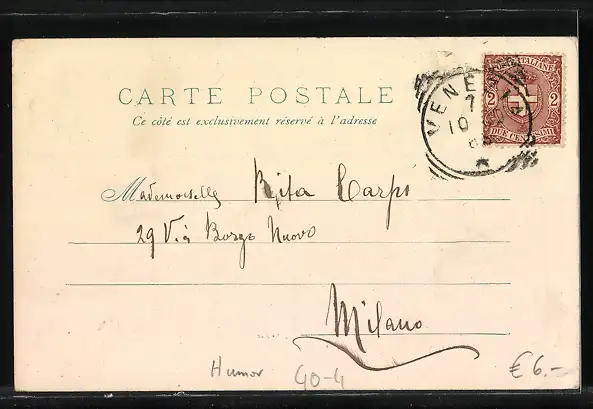 CARTE POSTALE
Ce côté est exclusivement réservé à l'adresse
POSTE ITALIANE
2 2
DUE CENTESIMI
VENEZIA
7
10
Mademoiselle Rita Carpi
29 Via Borgo Nuovo
Milano
Humor 40-4 € 6.-